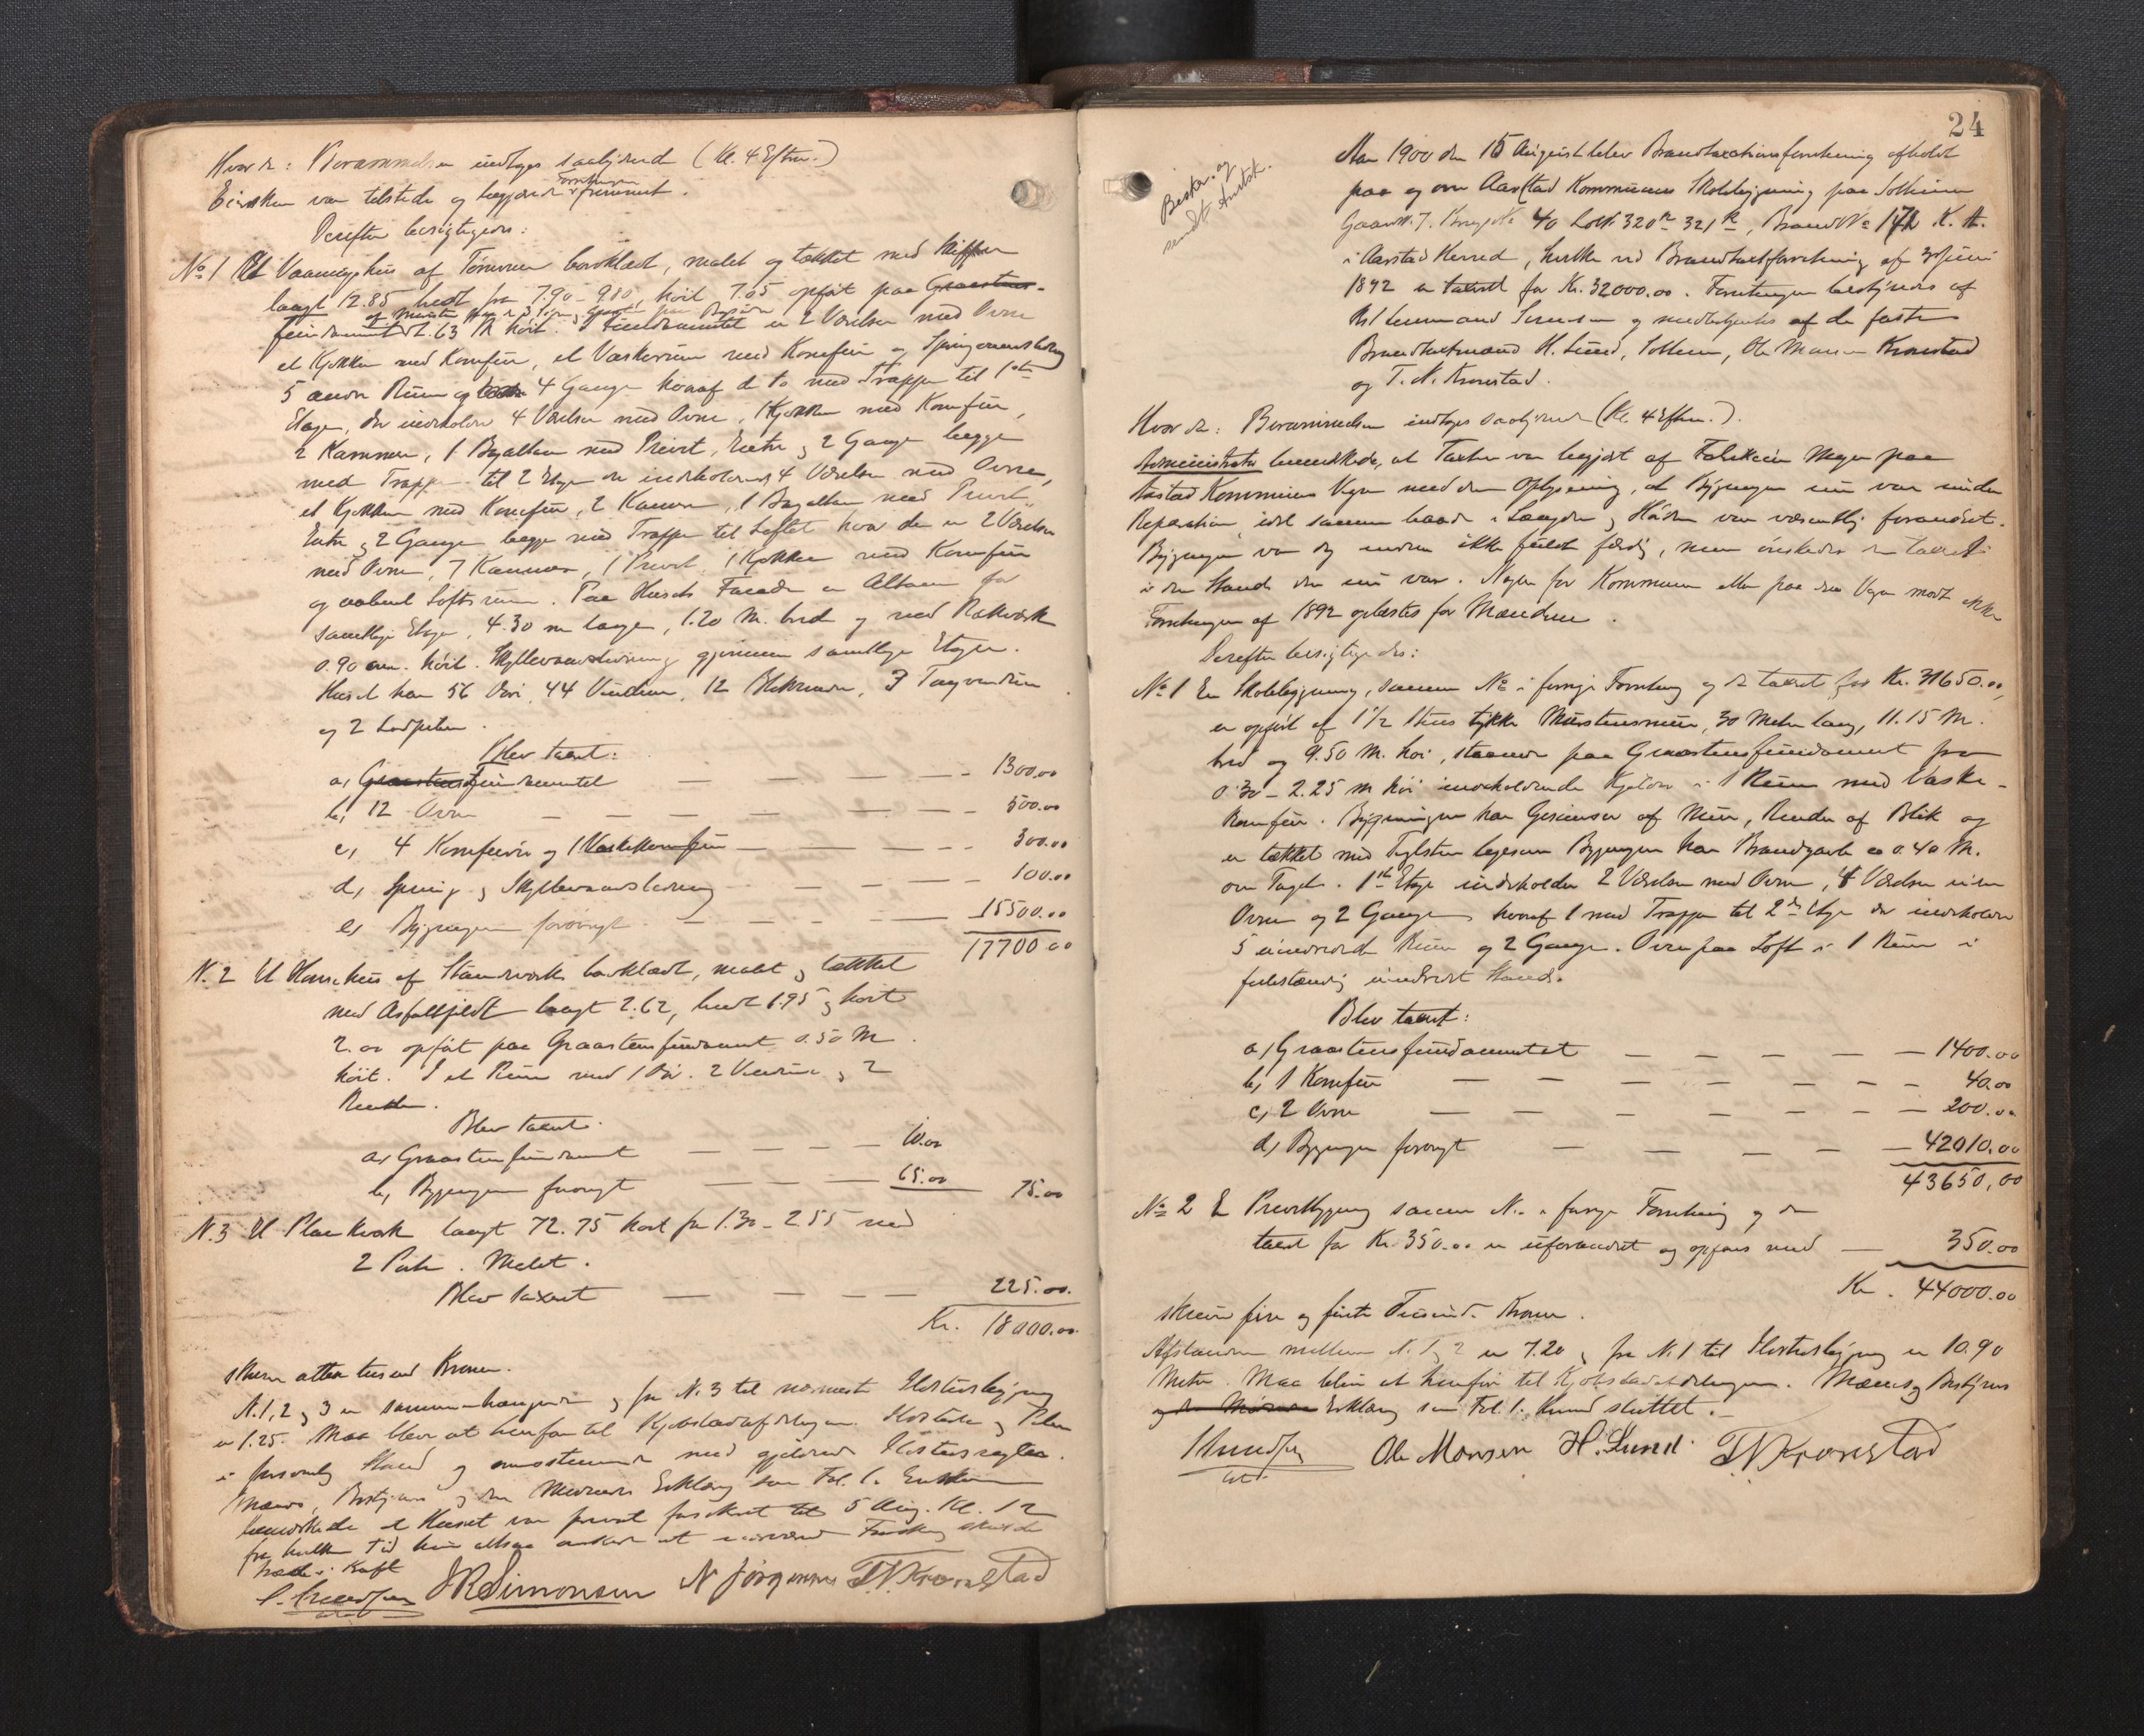 Hvor da: Berammelsen indtages saalydende (Kl. 4 Efterm.)
Eieren var tilstede og begjærede Forretningen fremmet.
Derefter besigtigedes:
No 1 Et Vaaningshus af Tømmer bordklædt, malet og tækket med Skiffer
langt 12.85 bredt fra 7.90 - 9.80, høit 7.05 opført paa Graastens-
fundament 2.63 M høit. I Fundamentet er 2 Værelser med Ovne
et Kjøkken med Komfur, et Vaskerum med Komfur og Springvandsledning
5 andre Rum og 4 Gange hvoraf de to med Trappe til 1ste
Etage, der indeholder 4 Værelser med Ovne, 1 Kjøkken med Komfur,
2 Kammer, 1 Bagaltan med Privet, Entre og 2 Gange begge
med Trappe til 2 Etage der indeholder 4 Værelser med Ovne,
et Kjøkken med Komfur, 2 Kammer, 1 Bagaltan med Privet,
Entre og 2 Gange begge med Trappe til Loftet hvor der er 2 Værelser
med Ovne, 7 Kammer, 1 Privet, 1 Kjøkken med Komfur
og aabent Loftsrum. Paa Husets Facade er Altaner for
samtlige Etager, 4.30 m lange, 1.20 M. bred og med Rækværk
0.90 cm. høit. Skyllevandsledning gjennem samtlige Etager.
Huset har 56 Døre, 44 Vinduer, 12 3 Tagvinduer
og 2 Ludpiber.
Blev taxeret:
a, Graastensfundamentet — — — — 1300.00
b, 12 Ovne — — — — — 500.00
c, 4 Komfurer og 1 Vaskekomfur — — — 300.00
d, Spring og Skyllevandsledning — — — 100.00
e, Bygningen forøvrigt — — — — 15500.00
17700.00
N. 2 Et Hønsehus af Standværk bordklædt, malet og tækket
med Asfaltfildt langt 2.62, bredt 1.95 og høit
2.00 opført paa Graastensfundament 0.50 M
høit. I et Rum med 1 Dør. 2 Vinduer og 2
Render.
Blev taxeret.
a, Graastensfundament — — — — 10.00
b, Bygningen forøvrigt — — — 65.00 75.00
N. 3 Et Plankeværk langt 72.75 høit fra 1.30 - 2.55 med
2 Porte. Malet.
Blev taxeret — — — — 225.00.
Kr. 18000.00.
skriver atten tusend Kroner.
N. 1, 2 og 3 er sammenhængende og fra N. 3 til nærmeste Husbygning
er 1.25. Maa blive at henføre til Kjøbstadafdelingen. Skorstene og Piber
i forsvarlig Stand og overensstemmende med gjældende
Mænds, Bestyrers og den Erklæring som Fol. 1. Eieren
bemærkede at Huset var privat forsikret til 5 Aug. Kl. 12
fra hvilken Tid han altsaa ønskede at nærværende Forretning skulde
træde i Kraft
J R Simonsen N Jørgensen T. N. Kronstad
24
Besk. og
sendt Amtsk.
Aar 1900 den 15 August blev Brandtaxtionsforretning afholdt
paa og over Aarstad Kommunes Skolebygning paa Solheim
Gaards N. 7. Brugs No 40 Løb N. 320 a 321 a, Brand No 172 K. A.
i Aarstad Herred, hvilke ved Brandtaxtforretning af 30 Juni
1892 er taxeret for Kr. 32000.00. Forretningen bestyredes af
Lensmand og medbetjentes af de faste
Brandtaxtmænd H. Lund, Solheim, Ole Monsen Kronstad
og T. N. Kronstad.
Hvor da: Berammelsen indtages saalydende (Kl. 4 Efterm.).
Administrator bemærkede, at Taxten var begjært af Fabrikeier Meyer paa
Aarstad Kommunes Vegne med den Oplysning, at Bygningen nu var under
Reparation, idet samme baade i Længden og Høiden var væsentlig forandret.
Bygningen var dog endnu ikke fuldt færdig, men ønskedes den taxeret
i den Stand den nu var. Nogen for Kommunen eller paa dens Vegne mødte ikke
Forretningen af 1892 oplæstes for Mændene.
Derefter besigtigedes:
No 1 En Skolebygning, samme No i forrige Forretning og da taxeret for Kr. 31650.00,
er opført af 1 1/2 Stens tykke Murstensmure, 30 Meter lang, 11.15 M.
bred og 9.50 M. høi, staaende paa Graastensfundament fra
0.30 - 2.25 M høi indeholdende Kjelder i 1 Rum med Vaske-
komfur. Bygningen har Gesimser af Mur, Render af Blik og
er tækket med Taglsten ligesom Bygningen har Brandgavle ca 0.40 M.
over Taget. 1ste Etage indeholder 2 Værelser med Ovne, 4 Værelser uden
Ovne og 2 Gange hvoraf 1 med Trappe til 2den Etage der indeholder
5 uindredede Rum og 2 Gange. Ovenpaa Loft i 1 Rum i
fuldstændig uindredet Stand.
Blev taxeret:
a, Graastensfundamentet — — — — — 1400.00
b, 1 Komfur — — — — — — — 40.00
c, 2 Ovne — — — — — — — 200.00
d, Bygningen forøvrigt — — — — — 42010.00
43650.00
No 2 En Privetbygning samme N. i forrige Forretning og da
taxeret for Kr. 350.00 er uforandret og opføres med — 350.00
Kr. 44000.00
skriver fire og firti Tusend Kroner.
Afstanden mellem N. 1 og 2 er 7.20 og fra N. 1 til Husbygning er 10.90
Meter. Maa blive at henføre til Kjøbstadafdelingen. Mænds og Bestyrers
Erklæring som Fol. 1. Hermed sluttet.
Ole Monsen H. Lund. T N Kronstad